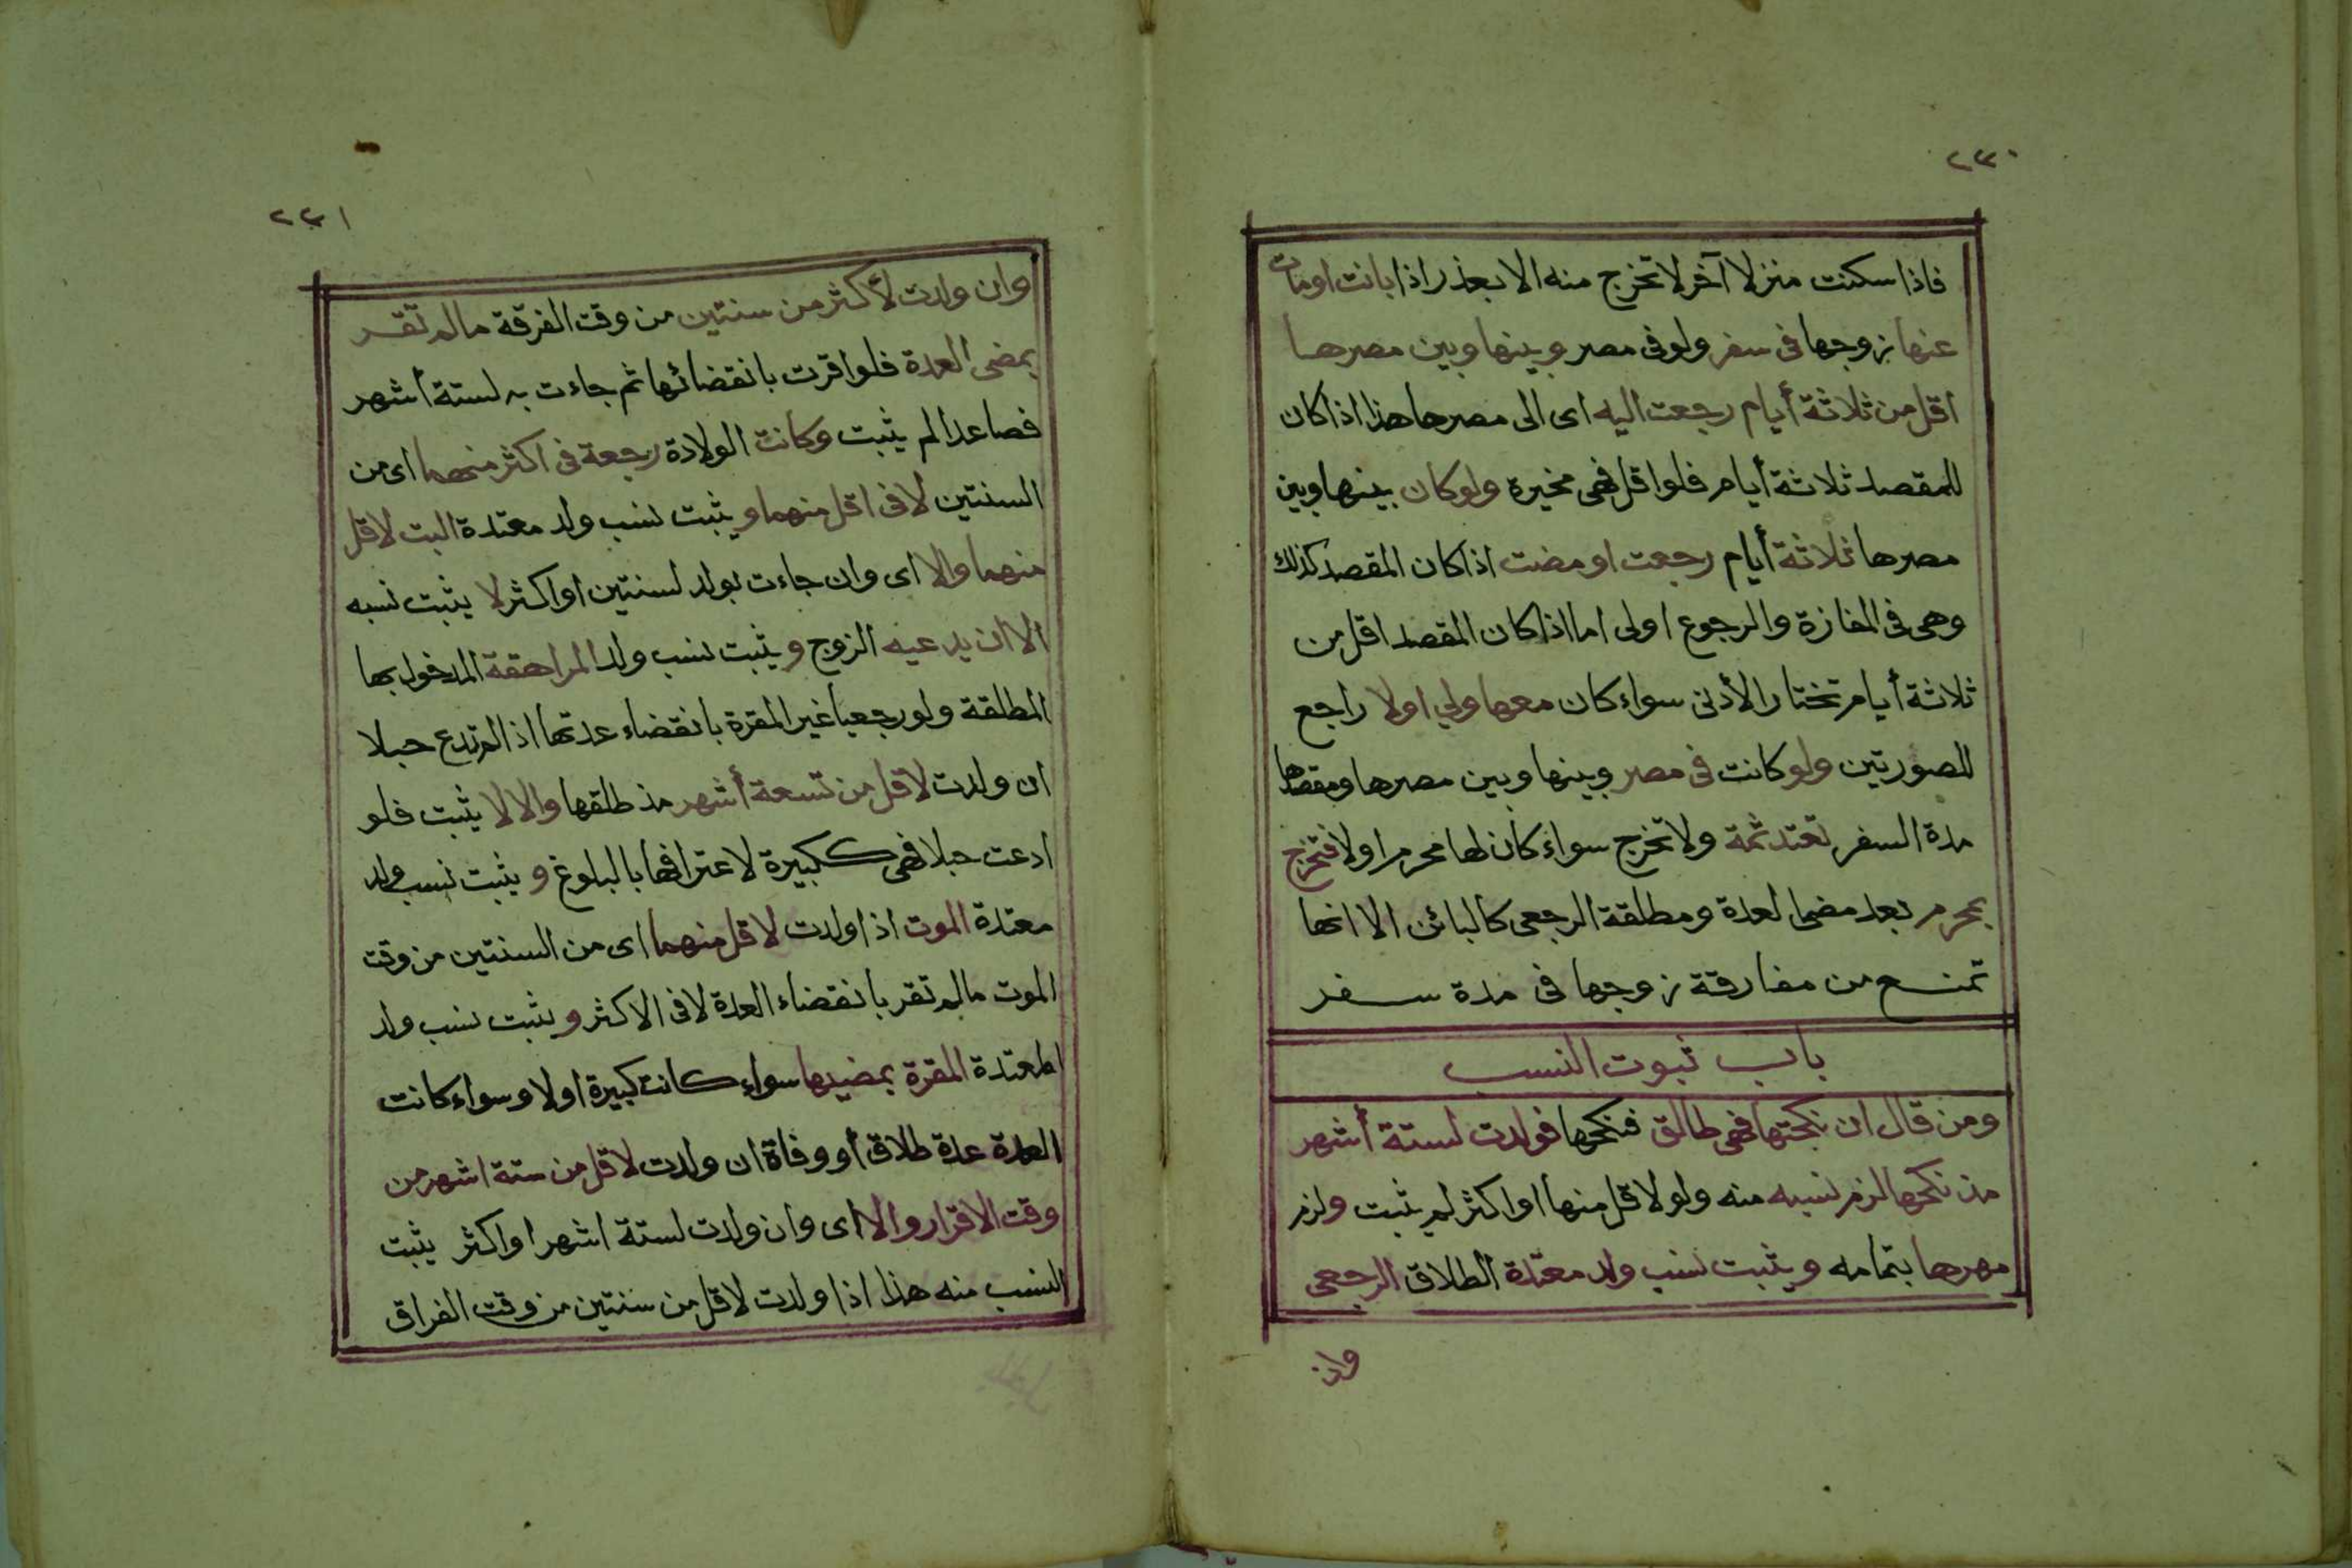 ٢٣٠
فاذا سكنت منزلا آخر لا تخرج منه الا بعذر اذا بانت او مات
عنها زوجها في سفر ولو في مصر وبينها وبين مصرها
اقل من ثلاثة أيام رجعت اليه اى الى مصرها هذا اذا كان
للمقصد ثلاثة أيام فلو اقل فهى مخيرة ولو كان بينها وبين
مصرها ثلاثة أيام رجعت او مضت اذا كان المقصد كذلك
وهى فى المفازة والرجوع اولى اما اذا كان المقصد اقل من
ثلاثة أيام تختار الأدنى سواء كان معها ولي اولا راجع
للصورتين ولو كانت فى مصر وبينها وبين مصرها ومقصدها
مدة السفر تعتد ثمة ولا تخرج سواء كان لها محرم اولا فتخرج
بمحرم بعد مضى العدة ومطلقة الرجعى كالبائن الا انها
تمنع من مفارقة زوجها فى مدة سفر
باب ثبوت النسب
ومن قال ان نكحتها فهى طالق فنكحها فولدت لستة أشهر
مذ نكحها لزم نسبه منه ولو لاقل منها او اكثر لم يثبت ولزم
مهرها بتمامه ويثبت نسب ولد معتدة الطلاق الرجعى
وان
٢٣١
وان ولدت لأكثر من سنتين من وقت الفرقة مالم تقر
بمضى العدة فلو اقرت بانقضائها ثم جاءت به لستة أشهر
فصاعدا لم يثبت وكانت الولادة رجعة فى اكثر منهما اى من
السنتين لا فى اقل منهما ويثبت نسب ولد معتدة البت لاقل
منهما والا اى وان جاءت بولد لسنتين او اكثر لا يثبت نسبه
الا ان يدعيه الزوج ويثبت نسب ولد المراهقة المدخول بها
المطلقة ولو رجعيا غير المقرة بانقضاء عدتها اذا لم تدع حبلا
ان ولدت لاقل من تسعة أشهر مذ طلقها والا لا يثبت فلو
ادعت حبلا فهى ككبيرة لاعترافها بالبلوغ ويثبت نسب ولد
معتدة الموت اذا ولدت لاقل منهما اى من السنتين من وقت
الموت مالم تقر بانقضاء العدة لا فى الاكثر ويثبت نسب ولد
المعتدة المقرة بمضيها سواء كانت كبيرة اولا وسواء كانت
العدة عدة طلاق أو وفاة ان ولدت لاقل من ستة اشهر من
وقت الاقرار والا اى وان ولدت لستة اشهر او اكثر يثبت
النسب منه هذا اذا ولدت لاقل من سنتين من وقت الفراق